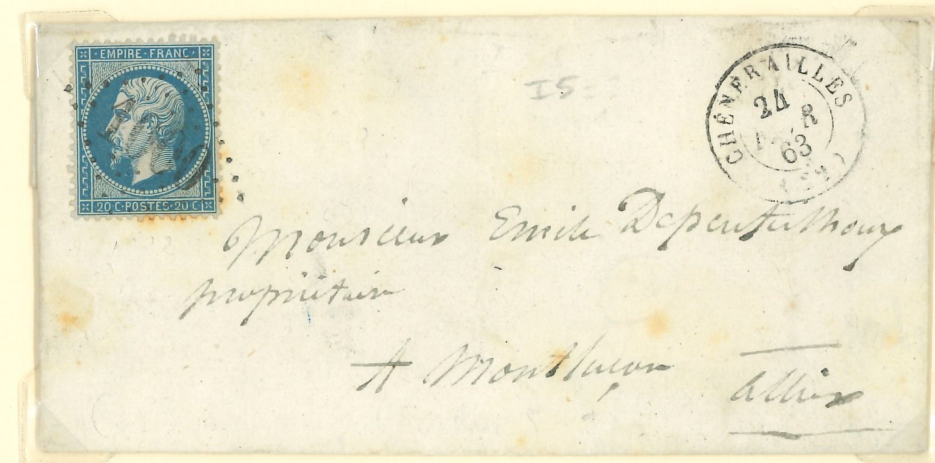 EMPIRE·FRANC·
20 C·POSTES·20 C
I5
CHÉNÉRAILLES
24
63
Monsieur Emile
propriétaire
A Montluçon Allier